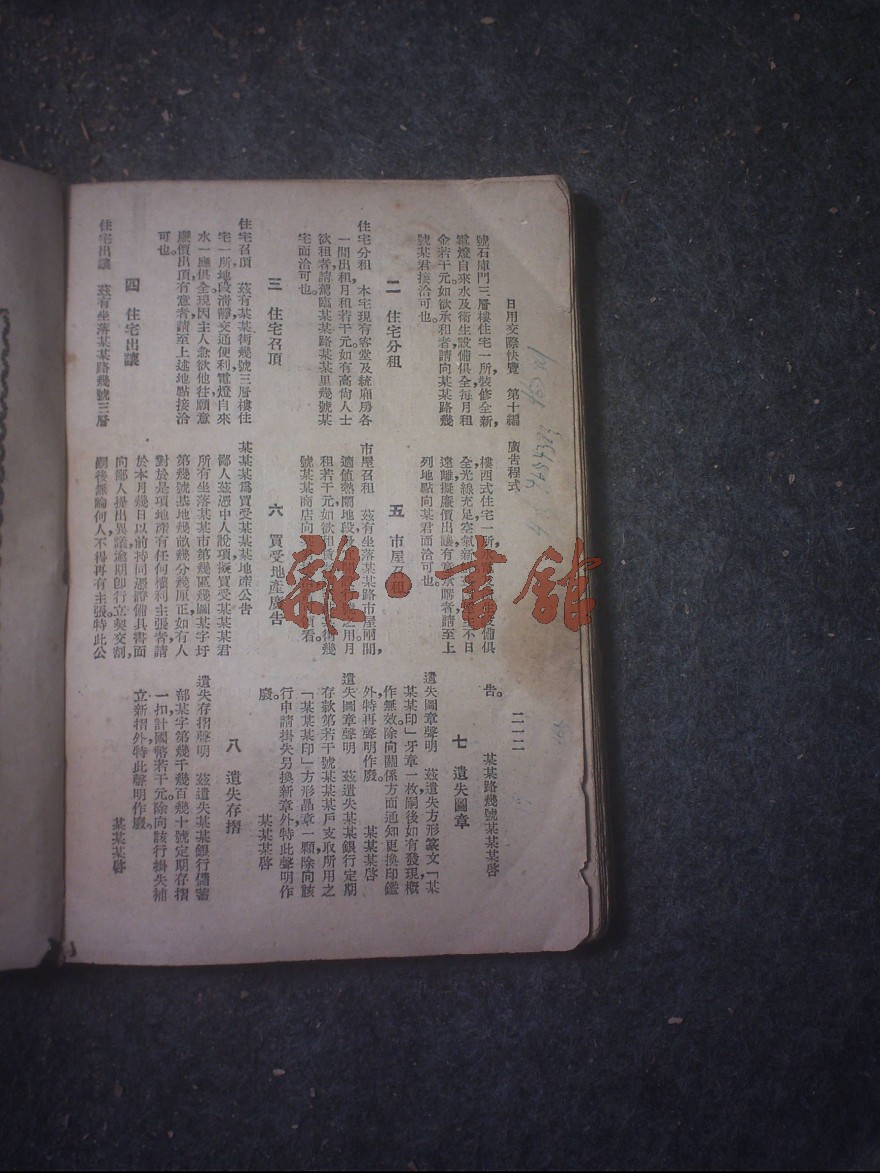 日用交際快覽　第十編　廣告程式　二一二
號石庫門三層樓住宅一所，裝修全新，
電燈自來水及衛生設備俱全，每月租
金若干元，如欲承租者，請向某某路幾
號某君接洽可也。
二　住宅分租
住宅分租　本宅現有客堂及統廂房各
一間出租，月租若干元，如有高尚人士
欲租者，請駕臨某某路某某里幾號某
宅面洽可也。
三　住宅召頂
住宅召頂　茲有某某街幾號三層樓住
宅一所，地段清靜，交通便利，電燈自來
水一應俱全，現因主人急欲他往，願意
廉價出頂，有意者請至上述地點接洽
可也。
四　住宅出讓
住宅出讓　茲有坐落某某路幾號三層
樓西式住宅一所
全光線充足空氣新
遠離擬廉價出讓有意承購者請至上
列地點向某君面洽可也。
五　市屋召租
市屋召租　茲有坐落某某路市屋兩間
適值熱鬧地段
租若干元如欲租
號某某商店向
六　買受地產廣告
某某某爲買受某某某某地產公告
鄙人茲憑中人說項擬買受某某某君
所有坐落某某市第幾區幾圖某字圩
第幾號基地幾畝幾分幾厘正如有人
對於是項地產有任何權利主張者，請
於本月幾日以前，特同憑證備具書面
向鄙人提出異議，逾期卽行立契交割，
嗣後無論何人，不得再有主張，特此公
告。
某某路幾號某某某啓
七　遺失圖章
遺失圖章聲明　茲遺失方形篆文「某
某某印」牙章一枚，嗣後如有發現，概
作無效，除向關係方面通知更換印鑑
外，特再聲明作廢。　某某某啓
遺失圖章聲明　茲遺失某某銀行定期
存款第若干號某某某戶支取所用之
「某某某印」方形晶章一顆，除向該
行申請掛失另換新章外，特此聲明作
廢。　某某某啓
八　遺失存摺
遺失存摺聲明　茲遺失某某銀行儲蓄
部某字第幾千幾百幾十號定期存摺
一扣，計國幣若干元，除向該行掛失補
立新摺外，特此聲明作廢。
某某某啓
雜·書館